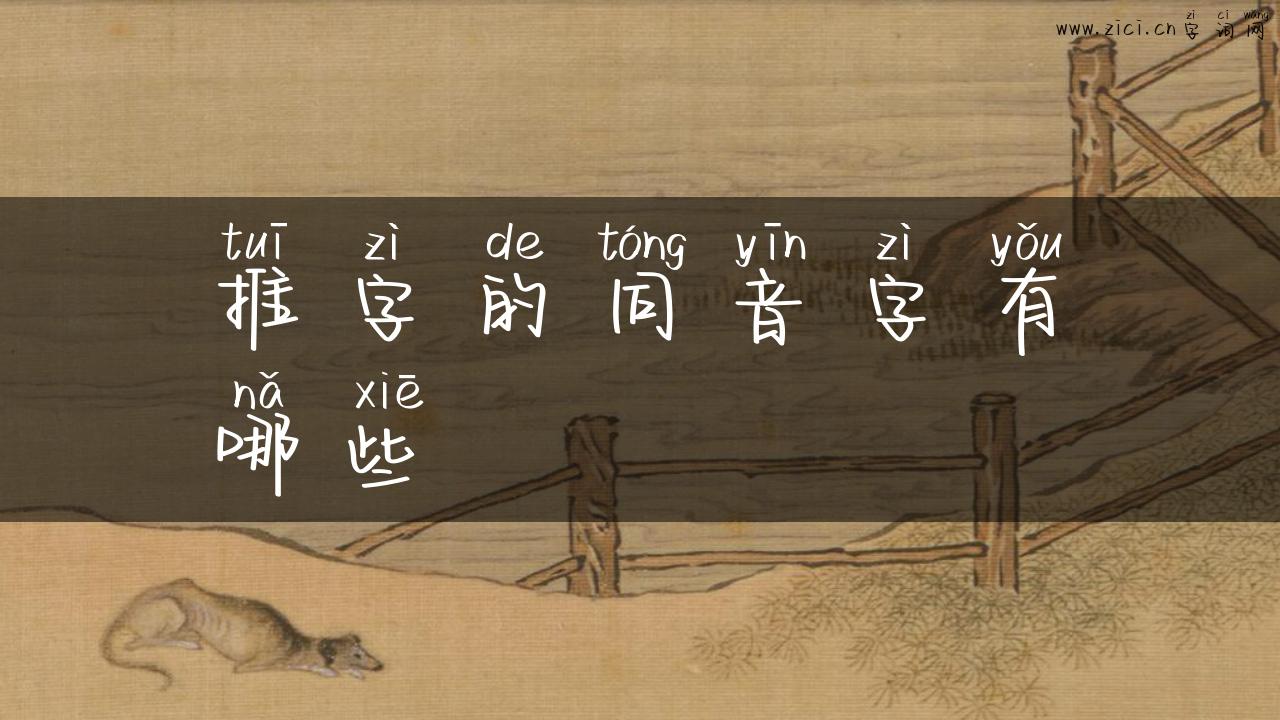 zì cí wǎng
www.zici.cn字词网
tuī zì de tóng yīn zì yǒu
推字的同音字有
nǎ xiē
哪些